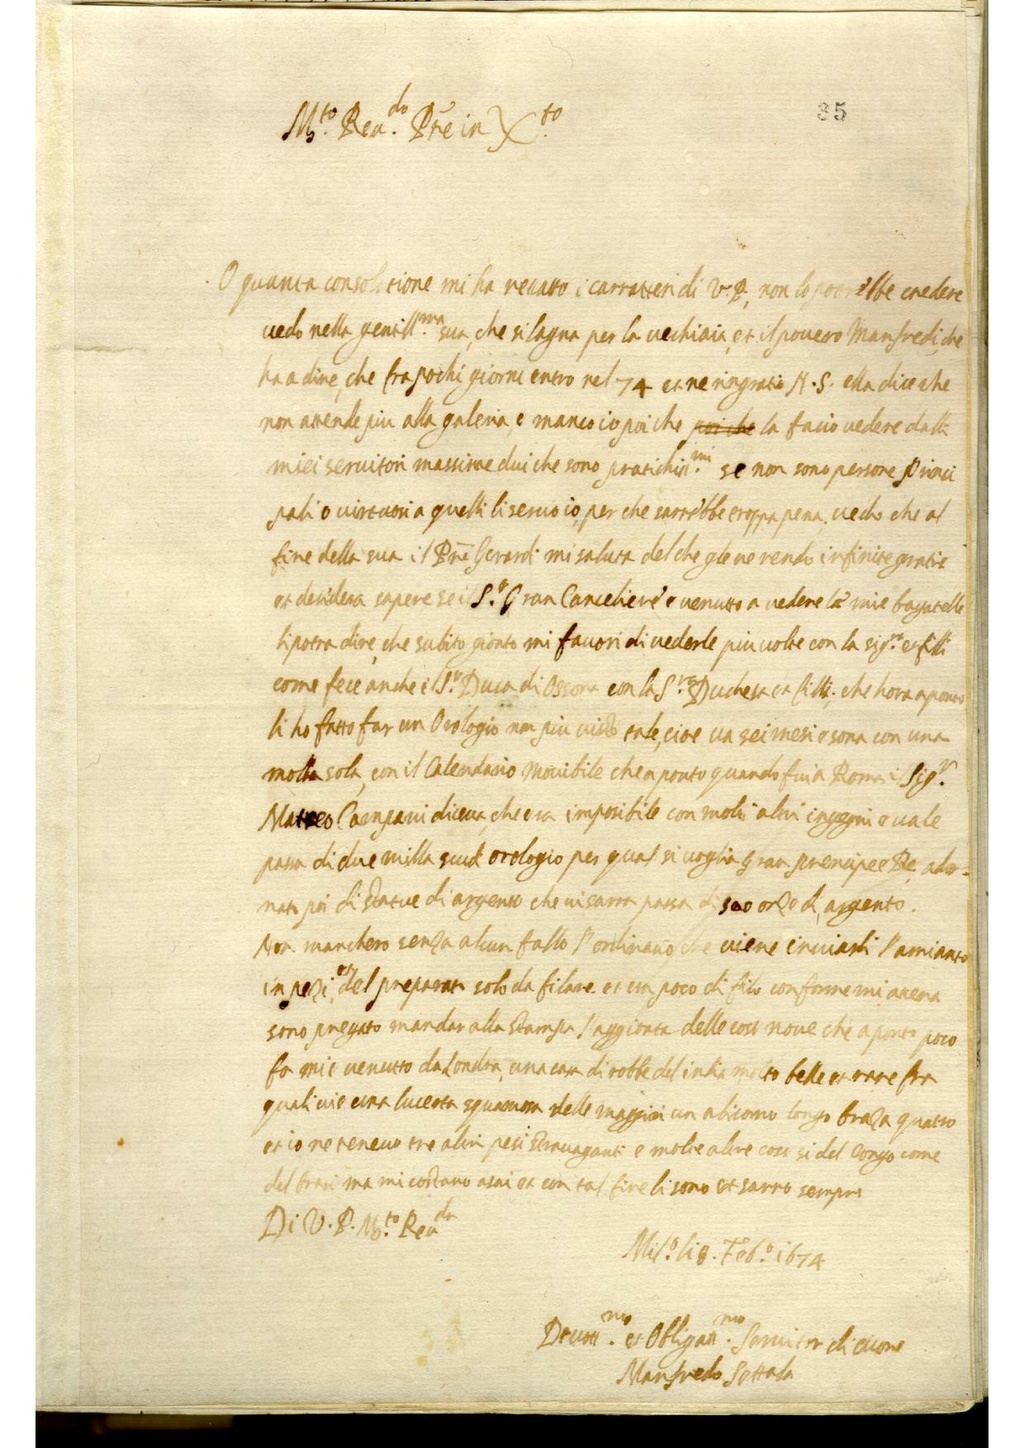 35
M.to Reu.do P're in X.to
O quanta consolatione mi ha recatto i carratteri di V. P. non lo potrebbe credere
vedo nella gentill.ma sua, che si lagna per la vechiaia, et il povero Manfredi, che
ha a dire, che fra pochi giorni entro nel 74 et ne ringratio N. S. ella dice che
non attende piu alla galeria, e manco io poi che poi che la facio vedere dalli
miei servitori massime dui che sono pratichiss.mi se non sono persone princi
pali o virtuosi a quelli li servo io, per che sarrebbe troppa pena, vedo che al
fine della sua il P're Gerardi mi saluta del che gle ne rendo infinite gratie
et desidera sapere se il S.r Gran Canceliere e venutto a vedere le mie bagatelle
li potra dire, che subito gionto mi favori di vederle piu volte con la sig.ra et filli
come fece anche il S.r Duca di Ossona con la S.ra Duchesa et filli, che hora aponto
li ho fatto far un Orologio non piu visto tale, cioe va sei mesi e sona con una
molla sola, con il Calendario movibile che aponto quando fui a Roma il Sig.r
Matteo Campani diceva, che era imposibile con molti altri ingegni e vale
passa di due milla scudi orologio per qual si voglia gran prencipe e Re, ador-
nato poi di statue di argento che vi sarra passa di 500 onze di argento.
Non manchero senza alcun fallo l'ordinario che viene inviarli l'amianto
in pezi, et del preparato solo da filare et un poco di filo conforme mi
sono pregato mandar alla stampa l'aggionta delle cose nove che aponto poco
fa mi e venutto da Londra, una casa di robbe del India molto belle et rare fra
quali vi e una lucerta squamosa delle magiori un alicorno longo braza quattro
et io ne tenevo tre altri pesi stravaganti e molte altre cose si del Congo come
del brasi ma mi costano asai et con tal fine li sono et sarro sempre
Di V. P. M.to Reu.da
Mil.o li 8. Feb.o 1674
Devott.mo et Obligatt.mo Servitor di cuore
Manfredo Settala